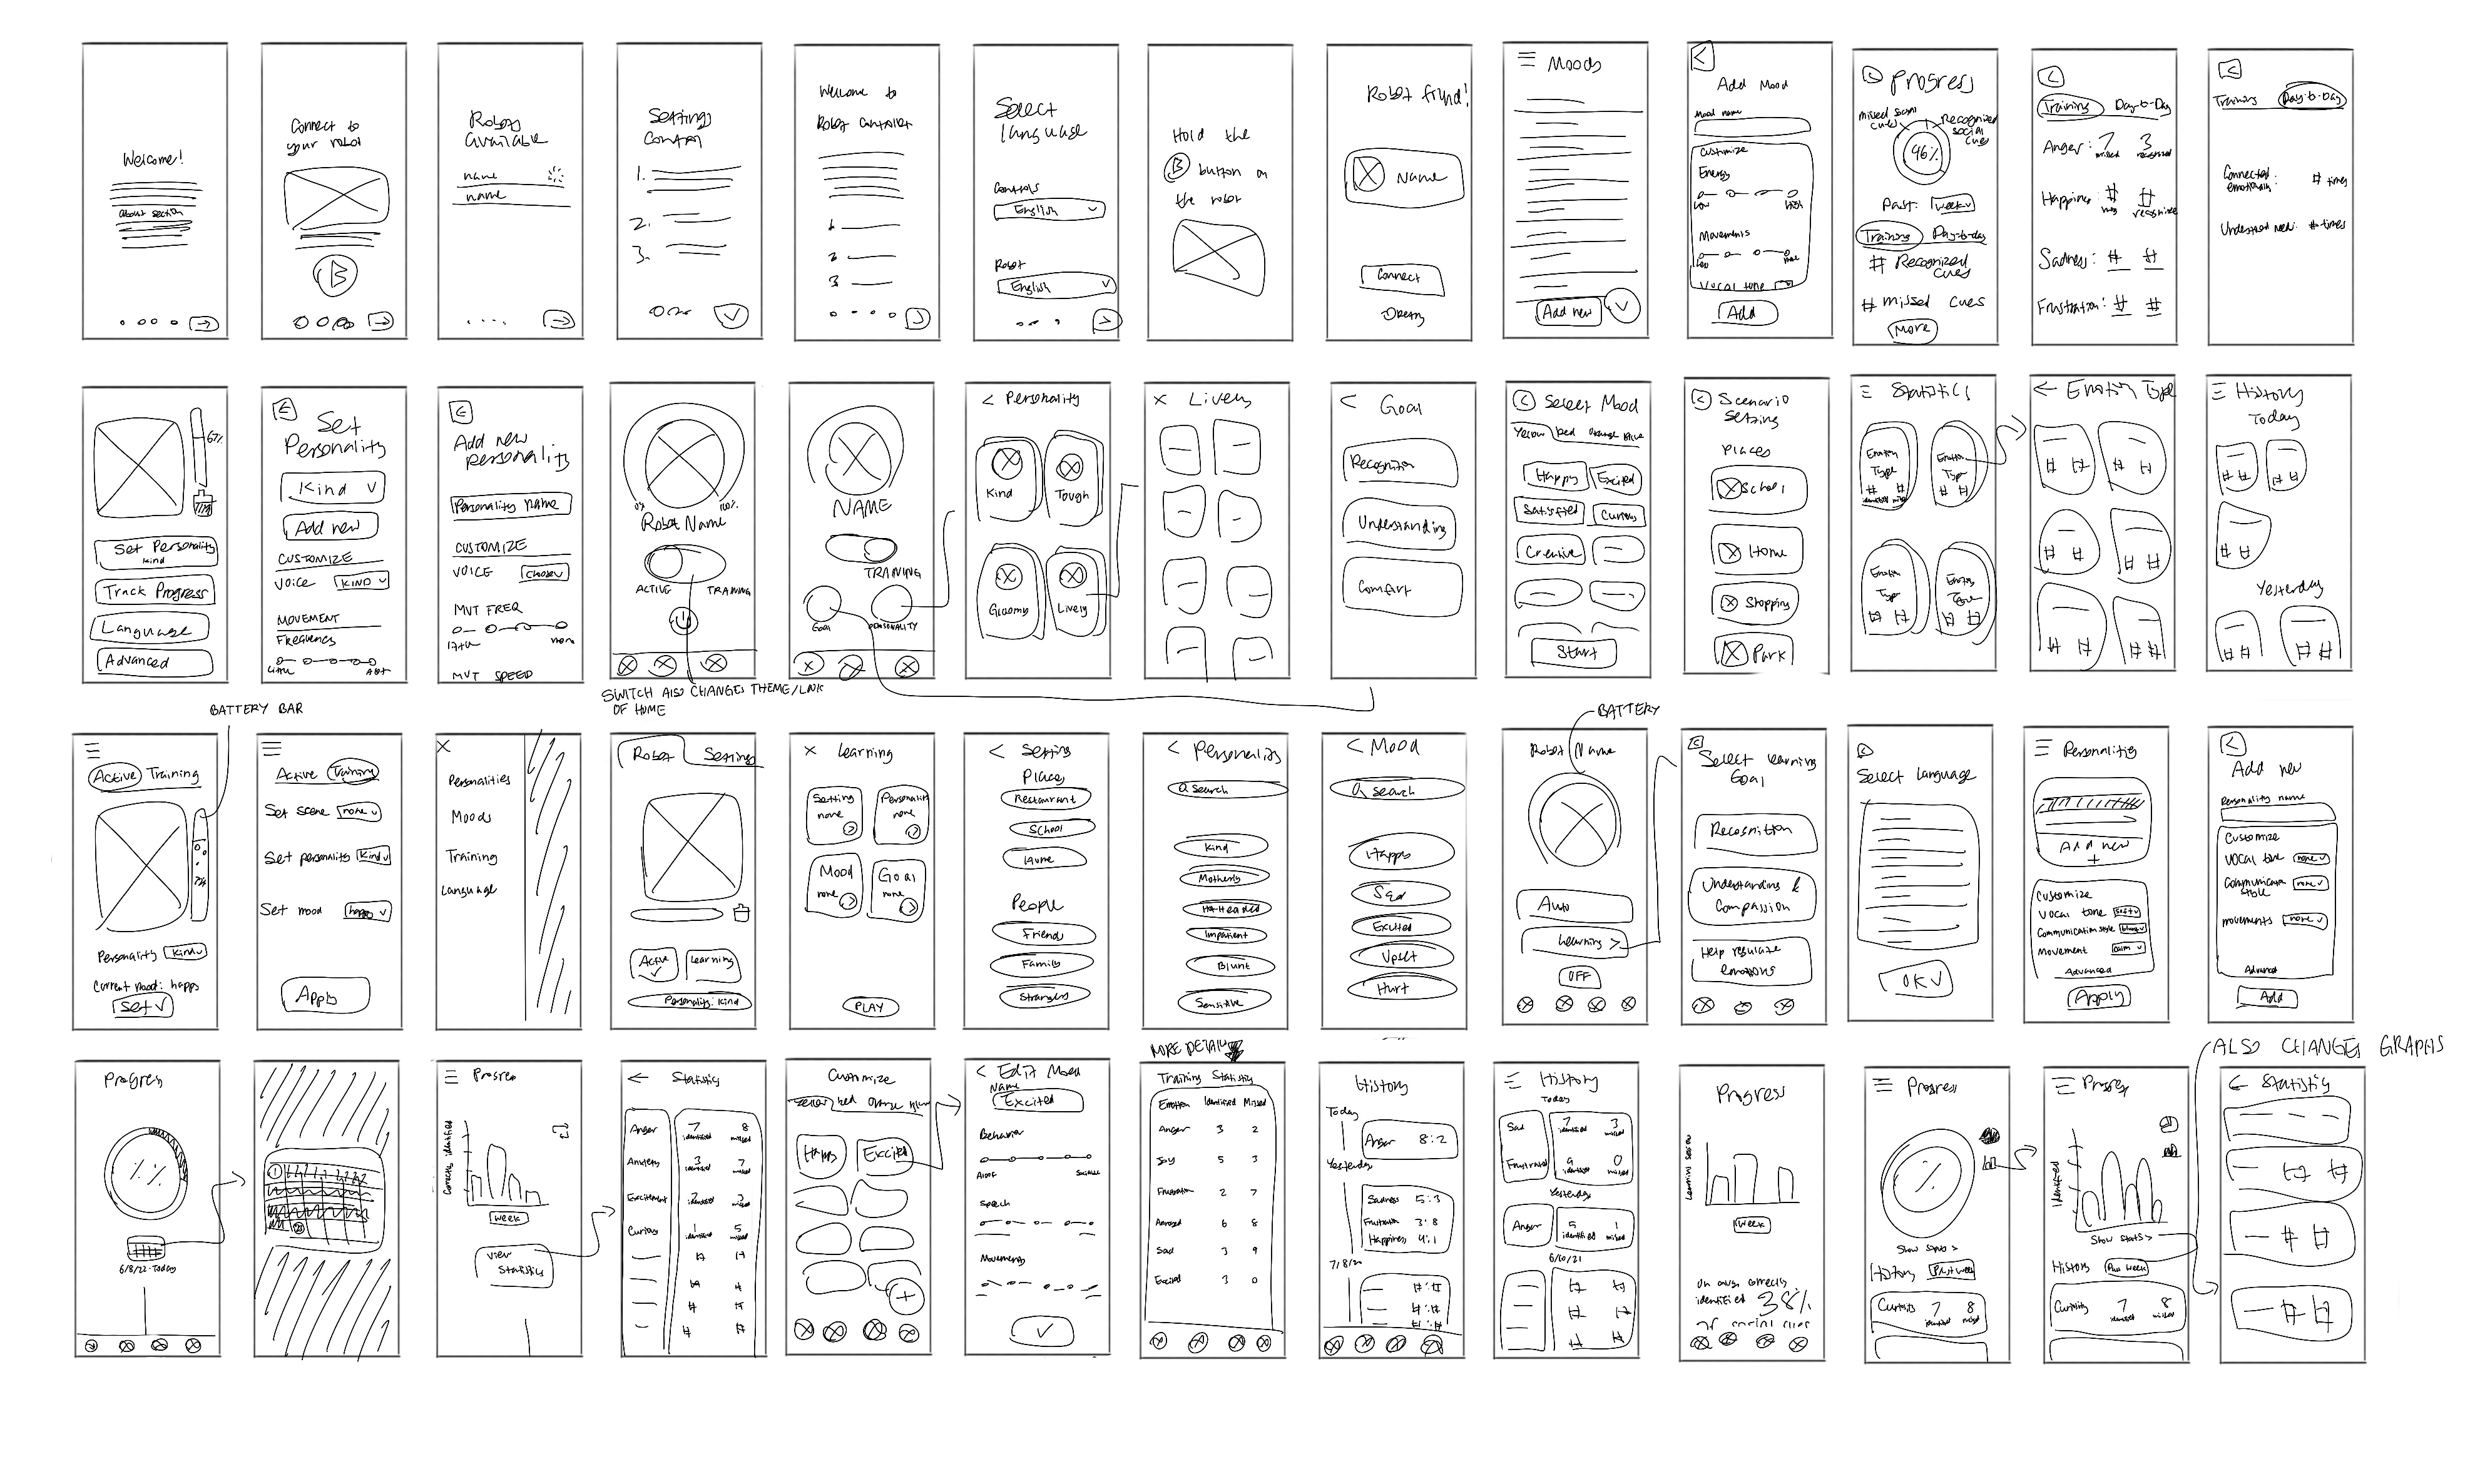 Welcome!
About section
Connect to
your robot
B
Robots
available
name
name
Settings
Control
1.
2.
3.
Welcome to
Robot Controller
1
2
3
Select
Language
Controls
English
Robot
English
Hold the
B button on
the robot
Robot found!
Name
Connect
Moods
Add new
Add Mood
Mood name
Customize
Energy
Low
High
Movements
Vocal tone
Add
Progress
missed social
cues
Recognized
social
cues
96%
Past: week
Training Day-to-day
# Recognized
cues
# missed cues
More
Training Day-to-Day
Anger: 7 3
missed recognized
Happiness # #
recognized
Sadness: # #
Frustration: # #
Training Day-to-Day
Connected
emotionally: # times
Understood need: # times
67%
Set Personality
kind
Track Progress
Language
Advanced
Set
Personality
Kind
Add new
CUSTOMIZE
VOICE KIND
MOVEMENT
Frequency
Little
Alot
Add new
Personality
Personality Name
CUSTOMIZE
VOICE Choose
MVT FREQ
little
more
MVT SPEED
0%
100%
Robot Name
ACTIVE TRAINING
SWITCH ALSO CHANGES THEME/LINK
OF HOME
NAME
TRAINING
GOAL
PERSONALITY
< Personality
Kind
Tough
Gloomy
Lively
X Lively
< Goal
Recognition
Understanding
Comfort
Select Mood
Yellow Red Orange Blue
Happy
Excited
Satisfied
Curious
Creative
Start
Scenario
Setting
PLACES
School
Home
Shopping
Park
Statistics
Emotion
Type
# #
identified missed
Emotion
Type
# #
Emotion
Type
# #
Emotion
Type
# #
Emotion Type
# #
# #
# #
# #
# #
# #
History
Today
# #
# #
# #
Yesterday
# #
# #
BATTERY BAR
Active Training
Personality Kind
Current mood: happy
Set
Active Training
Set scene none
Set personality Kind
Set mood happy
Apply
X
Personalities
Moods
Training
Language
Robot Settings
Active
Learning
Personality: Kind
X Learning
Setting
none
Personality
none
Mood
none
Goal
none
PLAY
< Setting
Places
Restaurant
School
Home
People
Friend
Family
Strangers
< Personality
Search
Kind
Motherly
Hot-Headed
Impatient
Blunt
Sensitive
< Mood
Search
Happy
Sad
Excited
Upset
Hurt
BATTERY
Robot Name
Auto
Learning >
OFF
Select learning
Goal
Recognition
Understanding &
Compassion
Help regulate
emotions
Select Language
OK
Personalities
Add new
+
Customize
Vocal tone soft
Communication style
Movement calm
Advanced
Apply
Add new
Personality name
Customize
Vocal tone none
Communication
style none
movements none
Advanced
Add
Progress
%
6/8/22-Today
Progress
Correctly identified
week
View
Statistics
Anger 7 8
identified missed
Anxiety 3 7
identified missed
Excitement 2 2
identified missed
Curious 1 5
identified missed
# #
# #
# #
# #
Customize
Yellow Red Orange Blue
Happy
Excited
+
< Edit Mood
Name
Excited
Behavior
Aloof
Sociable
Speech
Movements
MORE DETAIL
Training Statistics
Emotion Identified Missed
Anger 3 2
Joy 5 3
Frustration 2 7
Annoyed 6 8
Sad 3 9
Excited 3 0
History
Today
Anger 8:2
Yesterday
Sadness 5:3
Frustration 3:8
Happiness 4:1
#:#
#:#
#:#
History
Today
Sad 7 3
identified missed
Frustrated 9 0
identified missed
Yesterday
Anger 5 1
identified missed
6/10/21
# #
# #
# #
Progress
week
identified 38%
of social cues
Progress
%
Show Stats >
History Past week
Curiosity 7 8
identified missed
Progress
identified
Show Stats >
History Past week
Curiosity 7 8
identified missed
ALSO CHANGES GRAPHS
# #
# #
# #